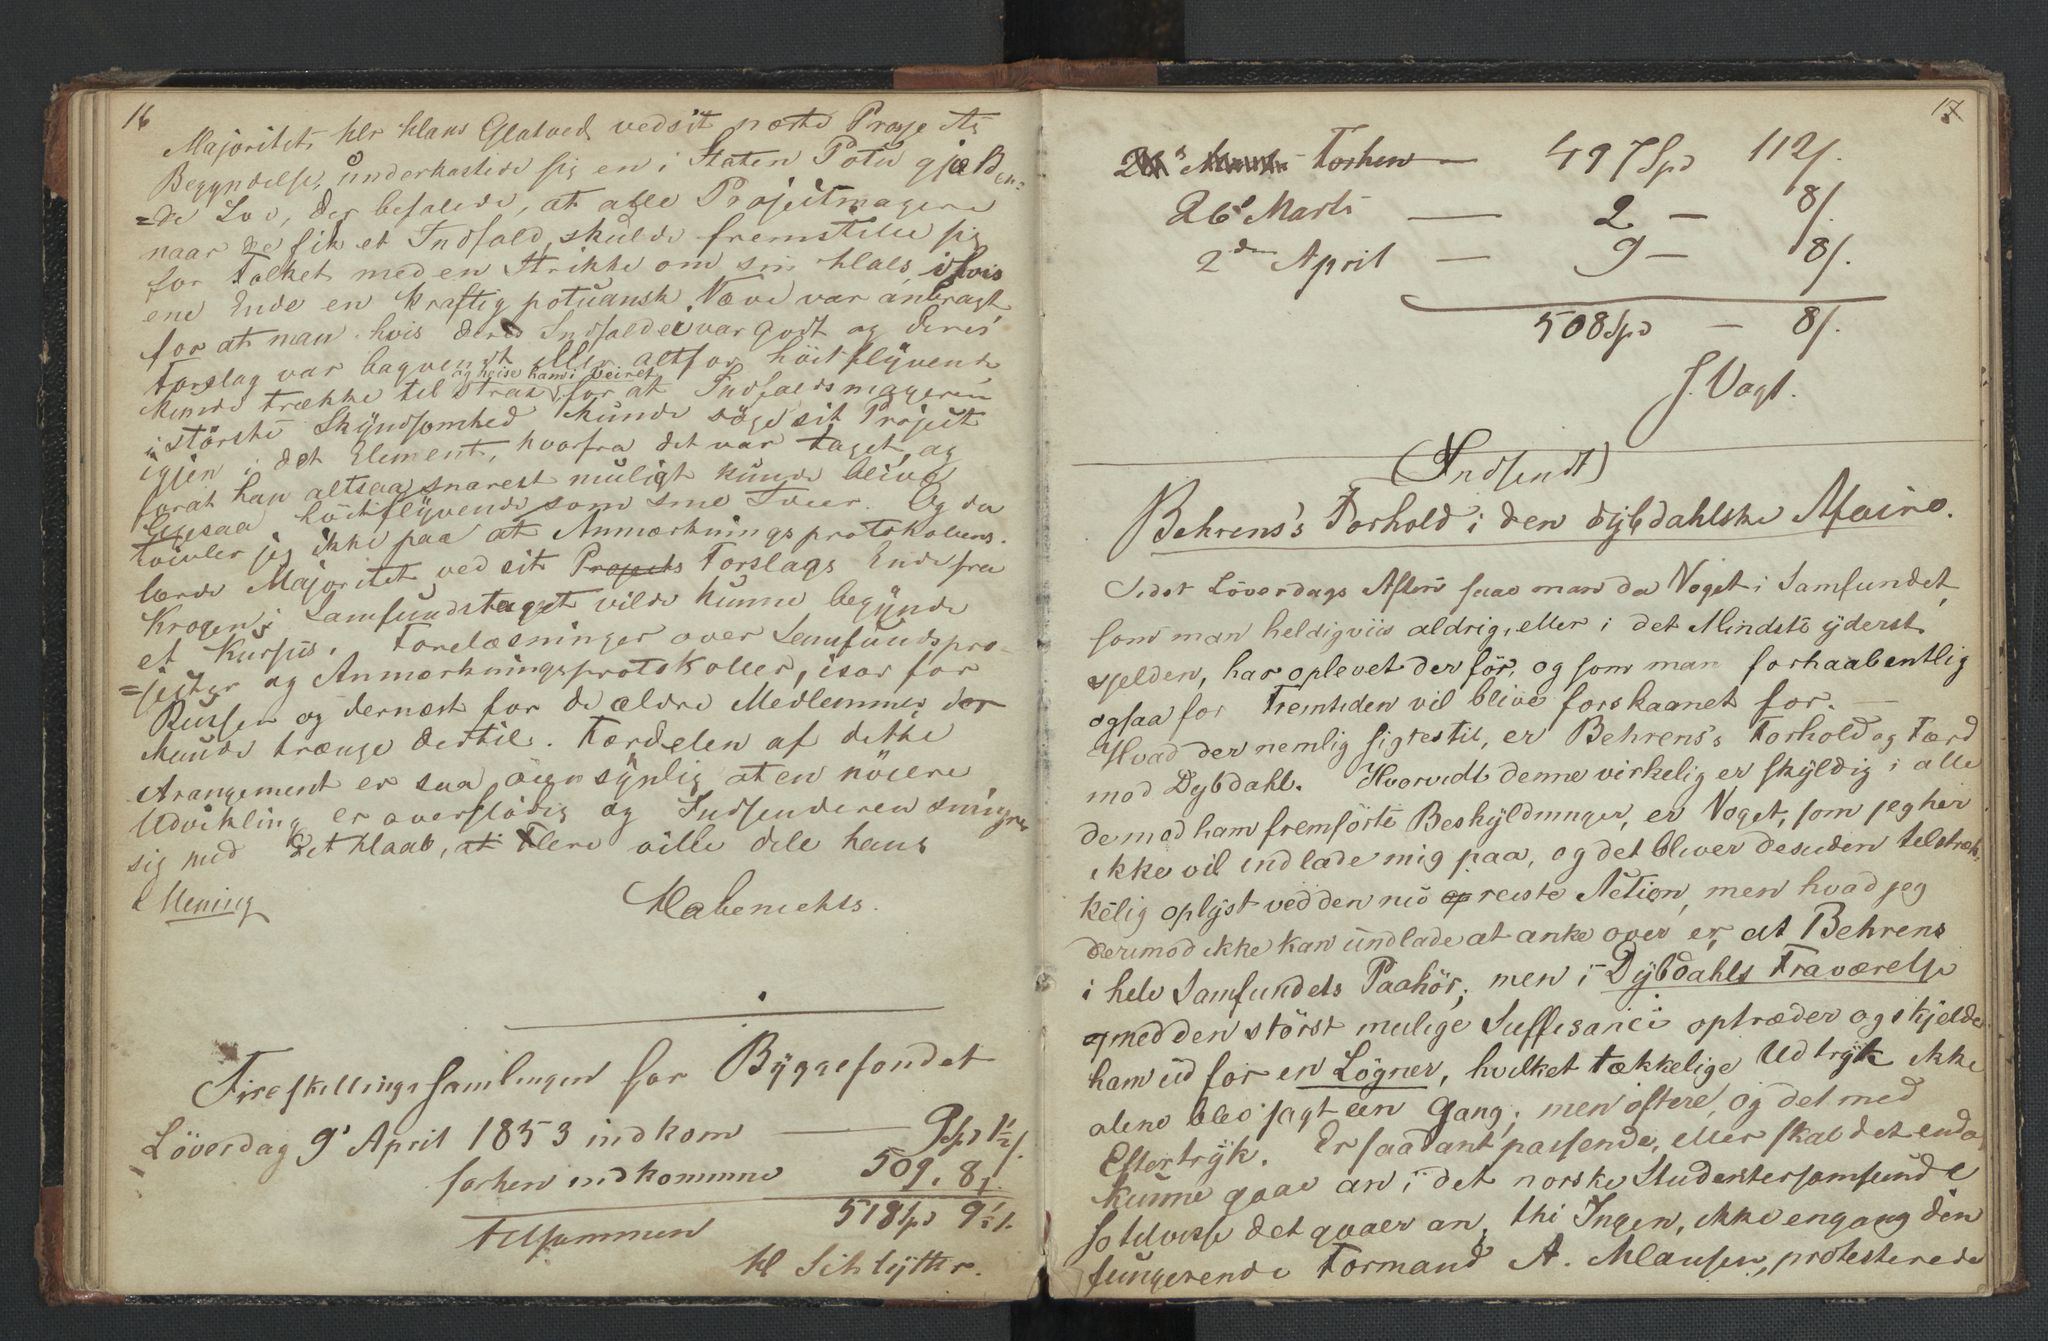 16
Majoritet, Hr Hans Glatved ved sit næste Projects
Begyndelse, underkastede sig en i Staten Potu gjælden-
=de Lov, der befalede, at alle Projectmagere
naar de fik et Indfald, skulde fremstille sig
for Folket med en Strikke om sin Hals, i hvis
ene Ende en kraftig potuansk Næve var anbragt
for at man hvis deres Indfald ei var godt og deres
Forslag var bagvendt eller altfor höitflyvende
kunde trække til strax og heise ham i Veiret, for at Indfaldsmageren
i störste Skyndsomhed kunde söge sit Project
igjen i det Element, hvorfra det var taget, og
forat han altsaa snarest muligt kunde blive
ligesaa höitflyvende som sine Ideer. Og da
tvivler jeg ikke paa at Anmærkningsprotokollens
lærde Majoritet ved sit Projects Forslags Ende fra
Krogen i Samfundstaget vilde kunne begynde
et Kursus, Forelæsninger over Samfundspro-
=jecter og Anmærkningsprotokoller, især for
Russen og dernæst for de ældre Medlemmer der
kunde trænge dertil. Fordelen af dette
Arangement er saa öiensynlig at en nöiere
Udvikling er overflödig og Indsenderen smigrer
sig med det Haab, at Flere ville dele hans
Mening
Habenichts.
Fireskillingssamlingen for Byggefondet
Löverdag 9d April 1853 indkom — 9 Spd 1½ s.
forhen indkomne 509. 8 s.
tilsammen 518 Spd 9½ s.
H Schlytter.
17
Forhen — 497 Spd 112 s.
26d Marts — 2 — 8 s.
2den April — 9 — 8 s.
508 Spd — 8 s.
J. Vogt.
(Indsendt)
Behrens's Forhold i den dybdahlske Afaire.
Sidst Löverdags Aften saae man da Noget i Samfundet,
som man heldigviis aldrig, eller i det Mindste yderst
sjelden, har oplevet der för, og som man forhaabentlig
ogsaa for Fremtiden vil blive forskaanet for. —
Hvad der nemlig sigtes til, er Behrens's Forhold og Færd
mod Dybdahl. Hvorvidt denne virkelig er skyldig i alle
de mod ham fremförte Beskyldninger, er Noget, som jeg her
ikke vil indlade mig paa, og det bliver desuden tilstræk-
kelig oplyst ved den nu reiste Action, men hvad jeg
derimod ikke kan undlade at anke over er, at Behrens
i hele Samfundets Paahör, men i Dybdahls Fraværelse
og med den störst mulige Suffisance optræder og skjelder
ham ud for en Lögner, hvilket tækkelige Udtryk ikke
alene blev sagt een Gang, men oftere, og det med
Eftertryk. Er saadant passende, eller skal det endog
kunne gaae an i det norske Studentersamfund?
Jo tilvisse det gaaer an, thi Ingen, ikke engang den
fungerende Formand A. Klausen, protesterede